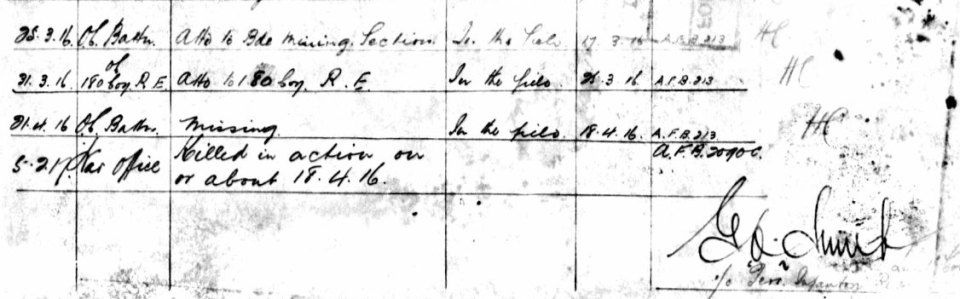 25.3.16. O.C. Battn. Atto to Bde Mining Section In the field 17.3.16 A.F.B.213 HC
of
31.3.16. 180 Coy. R.E. Atto to 180 Coy. R.E. In the field. 26.3.16 A.F.B.213 HC
21.4.16 O.C. Battn. Missing. In the field 18.4.16. A.F.B.213 HC
A.F.B.2090C.
5.2.17. War Office Killed in action on
or about 18.4.16.